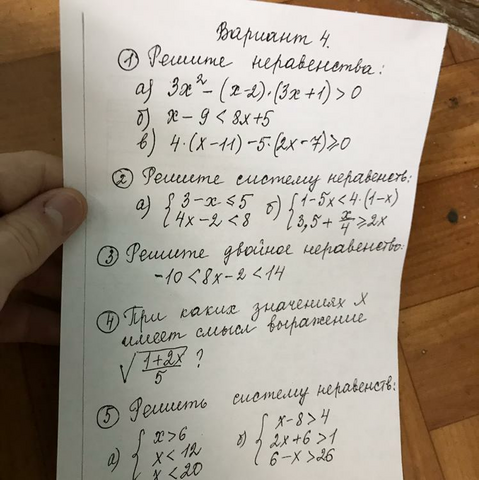 Вариант 4.
① Решите неравенства:
а) 3x² - (x-2)·(3x+1) > 0
б) x - 9 < 8x+5
в) 4·(x-11) - 5·(2x-7) ≥ 0
② Решите систему неравенств:
а) { 3-x ≤ 5 б) { 1-5x < 4·(1-x)
4x-2 < 8 3,5 + x/4 ≥ 2x
③ Решите двойное неравенство:
-10 < 8x-2 < 14
④ При каких значениях x
имеет смысл выражение
√((1+2x)/5) ?
⑤ Решить систему неравенств:
а) { x > 6 в) { x-8 > 4
x < 12 2x+6 > 1
x < 20 6-x > 26